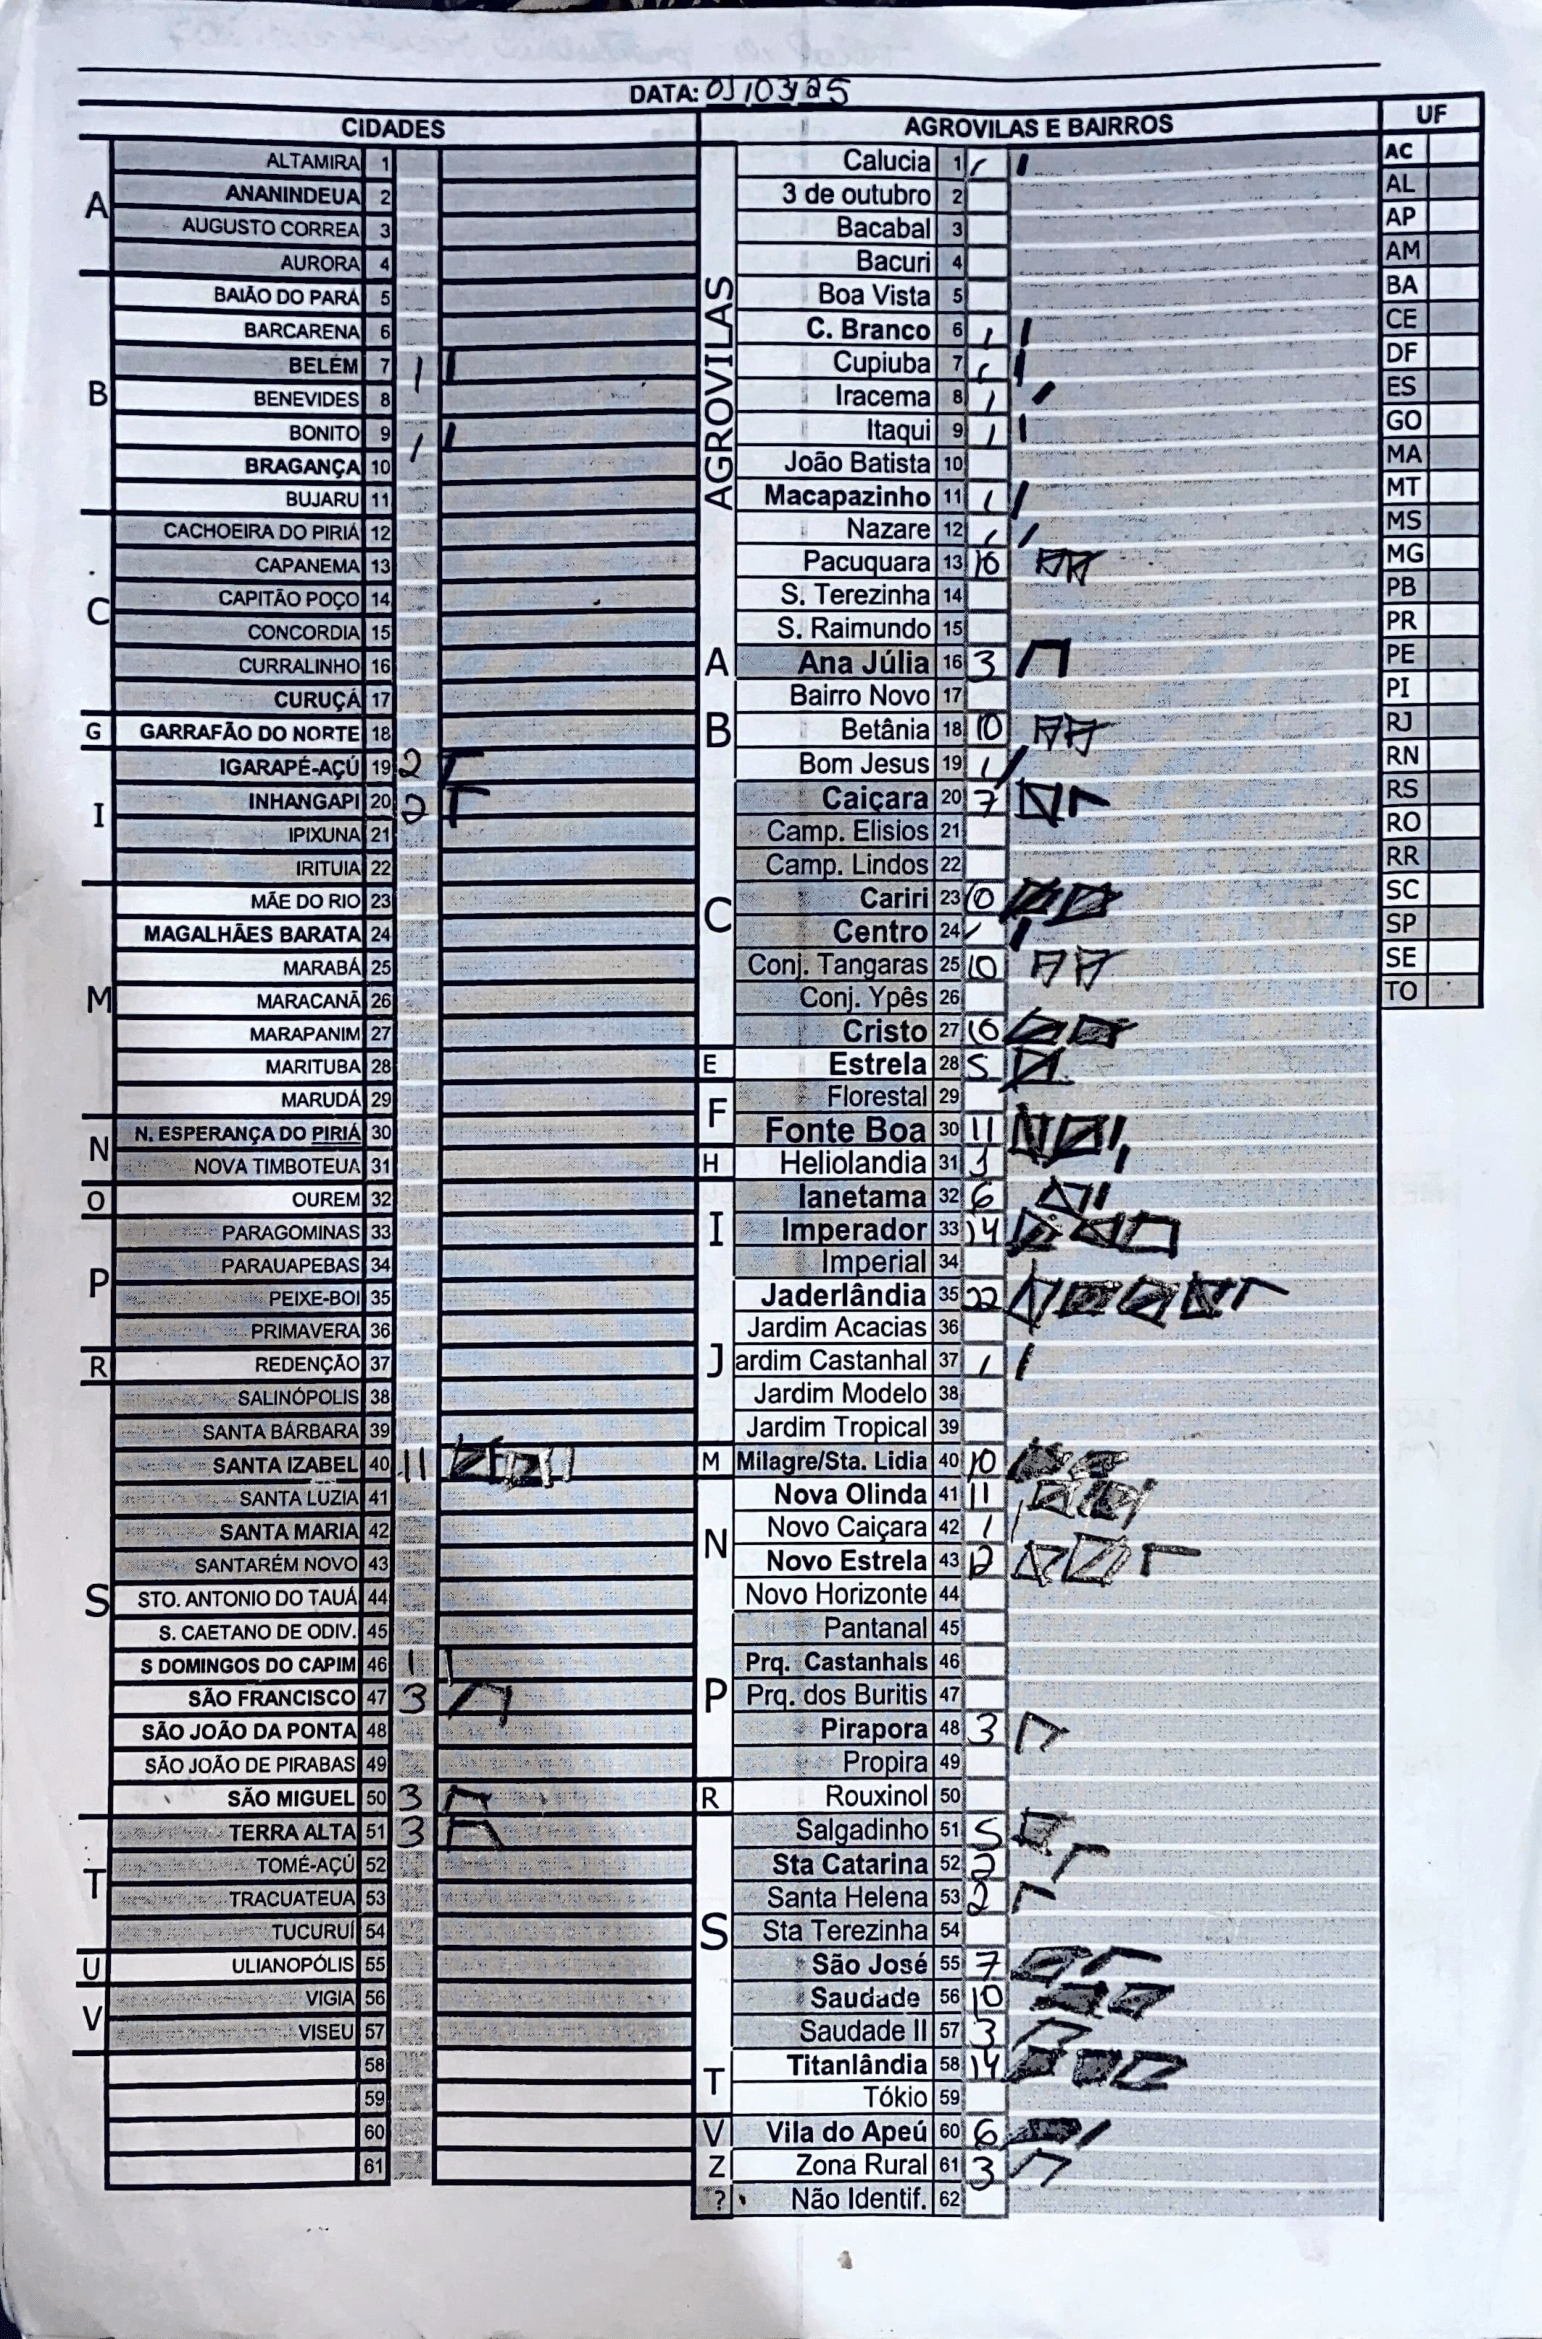 DATA: 01/03/25
CIDADES
A
ALTAMIRA 1
ANANINDEUA 2
AUGUSTO CORREA 3
AURORA 4
B
BAIÃO DO PARÁ 5
BARCARENA 6
BELÉM 7 1
BENEVIDES 8
BONITO 9 1
BRAGANÇA 10
BUJARU 11
C
CACHOEIRA DO PIRIÁ 12
CAPANEMA 13
CAPITÃO POÇO 14
CONCORDIA 15
CURRALINHO 16
CURUÇÁ 17
G
GARRAFÃO DO NORTE 18
I
IGARAPÉ-AÇÚ 19 2
INHANGAPI 20 2
IPIXUNA 21
IRITUIA 22
M
MÃE DO RIO 23
MAGALHÃES BARATA 24
MARABÁ 25
MARACANÃ 26
MARAPANIM 27
MARITUBA 28
MARUDÁ 29
N
N. ESPERANÇA DO PIRIÁ 30
NOVA TIMBOTEUA 31
O
OUREM 32
P
PARAGOMINAS 33
PARAUAPEBAS 34
PEIXE-BOI 35
PRIMAVERA 36
R
REDENÇÃO 37
S
SALINÓPOLIS 38
SANTA BÁRBARA 39
SANTA IZABEL 40 11
SANTA LUZIA 41
SANTA MARIA 42
SANTARÉM NOVO 43
STO. ANTONIO DO TAUÁ 44
S. CAETANO DE ODIV. 45
S DOMINGOS DO CAPIM 46 1
SÃO FRANCISCO 47 3
SÃO JOÃO DA PONTA 48
SÃO JOÃO DE PIRABAS 49
SÃO MIGUEL 50 3
T
TERRA ALTA 51 3
TOMÉ-AÇÚ 52
TRACUATEUA 53
TUCURUÍ 54
U
ULIANOPÓLIS 55
V
VIGIA 56
VISEU 57
58
59
60
61
AGROVILAS E BAIRROS
AGROVILAS
Calucia 1 1
3 de outubro 2
Bacabal 3
Bacuri 4
Boa Vista 5
C. Branco 6 1
Cupiuba 7 1
Iracema 8 1
Itaqui 9 1
João Batista 10
Macapazinho 11 1
Nazare 12 1
Pacuquara 13 10
S. Terezinha 14
S. Raimundo 15
A
Ana Júlia 16 3
B
Bairro Novo 17
Betânia 18 10
Bom Jesus 19 1
C
Caiçara 20 7
Camp. Elisios 21
Camp. Lindos 22
Cariri 23 10
Centro 24 1
Conj. Tangaras 25 10
Conj. Ypês 26
Cristo 27 10
E
Estrela 28 5
F
Florestal 29
Fonte Boa 30 11
H
Heliolandia 31 1
I
Ianetama 32 6
Imperador 33 14
Imperial 34
J
Jaderlândia 35 22
Jardim Acacias 36
ardim Castanhal 37 1
Jardim Modelo 38
Jardim Tropical 39
M
Milagre/Sta. Lidia 40 10
N
Nova Olinda 41 11
Novo Caiçara 42 1
Novo Estrela 43 12
Novo Horizonte 44
P
Pantanal 45
Prq. Castanhais 46
Prq. dos Buritis 47
Pirapora 48 3
Propira 49
R
Rouxinol 50
S
Salgadinho 51 5
Sta Catarina 52 2
Santa Helena 53 2
Sta Terezinha 54
São José 55 7
Saudade 56 10
Saudade II 57 3
T
Titanlândia 58 14
Tókio 59
V
Vila do Apeú 60 6
Z
Zona Rural 61 3
?
Não Identif. 62
UF
AC
AL
AP
AM
BA
CE
DF
ES
GO
MA
MT
MS
MG
PB
PR
PE
PI
RJ
RN
RS
RO
RR
SC
SP
SE
TO